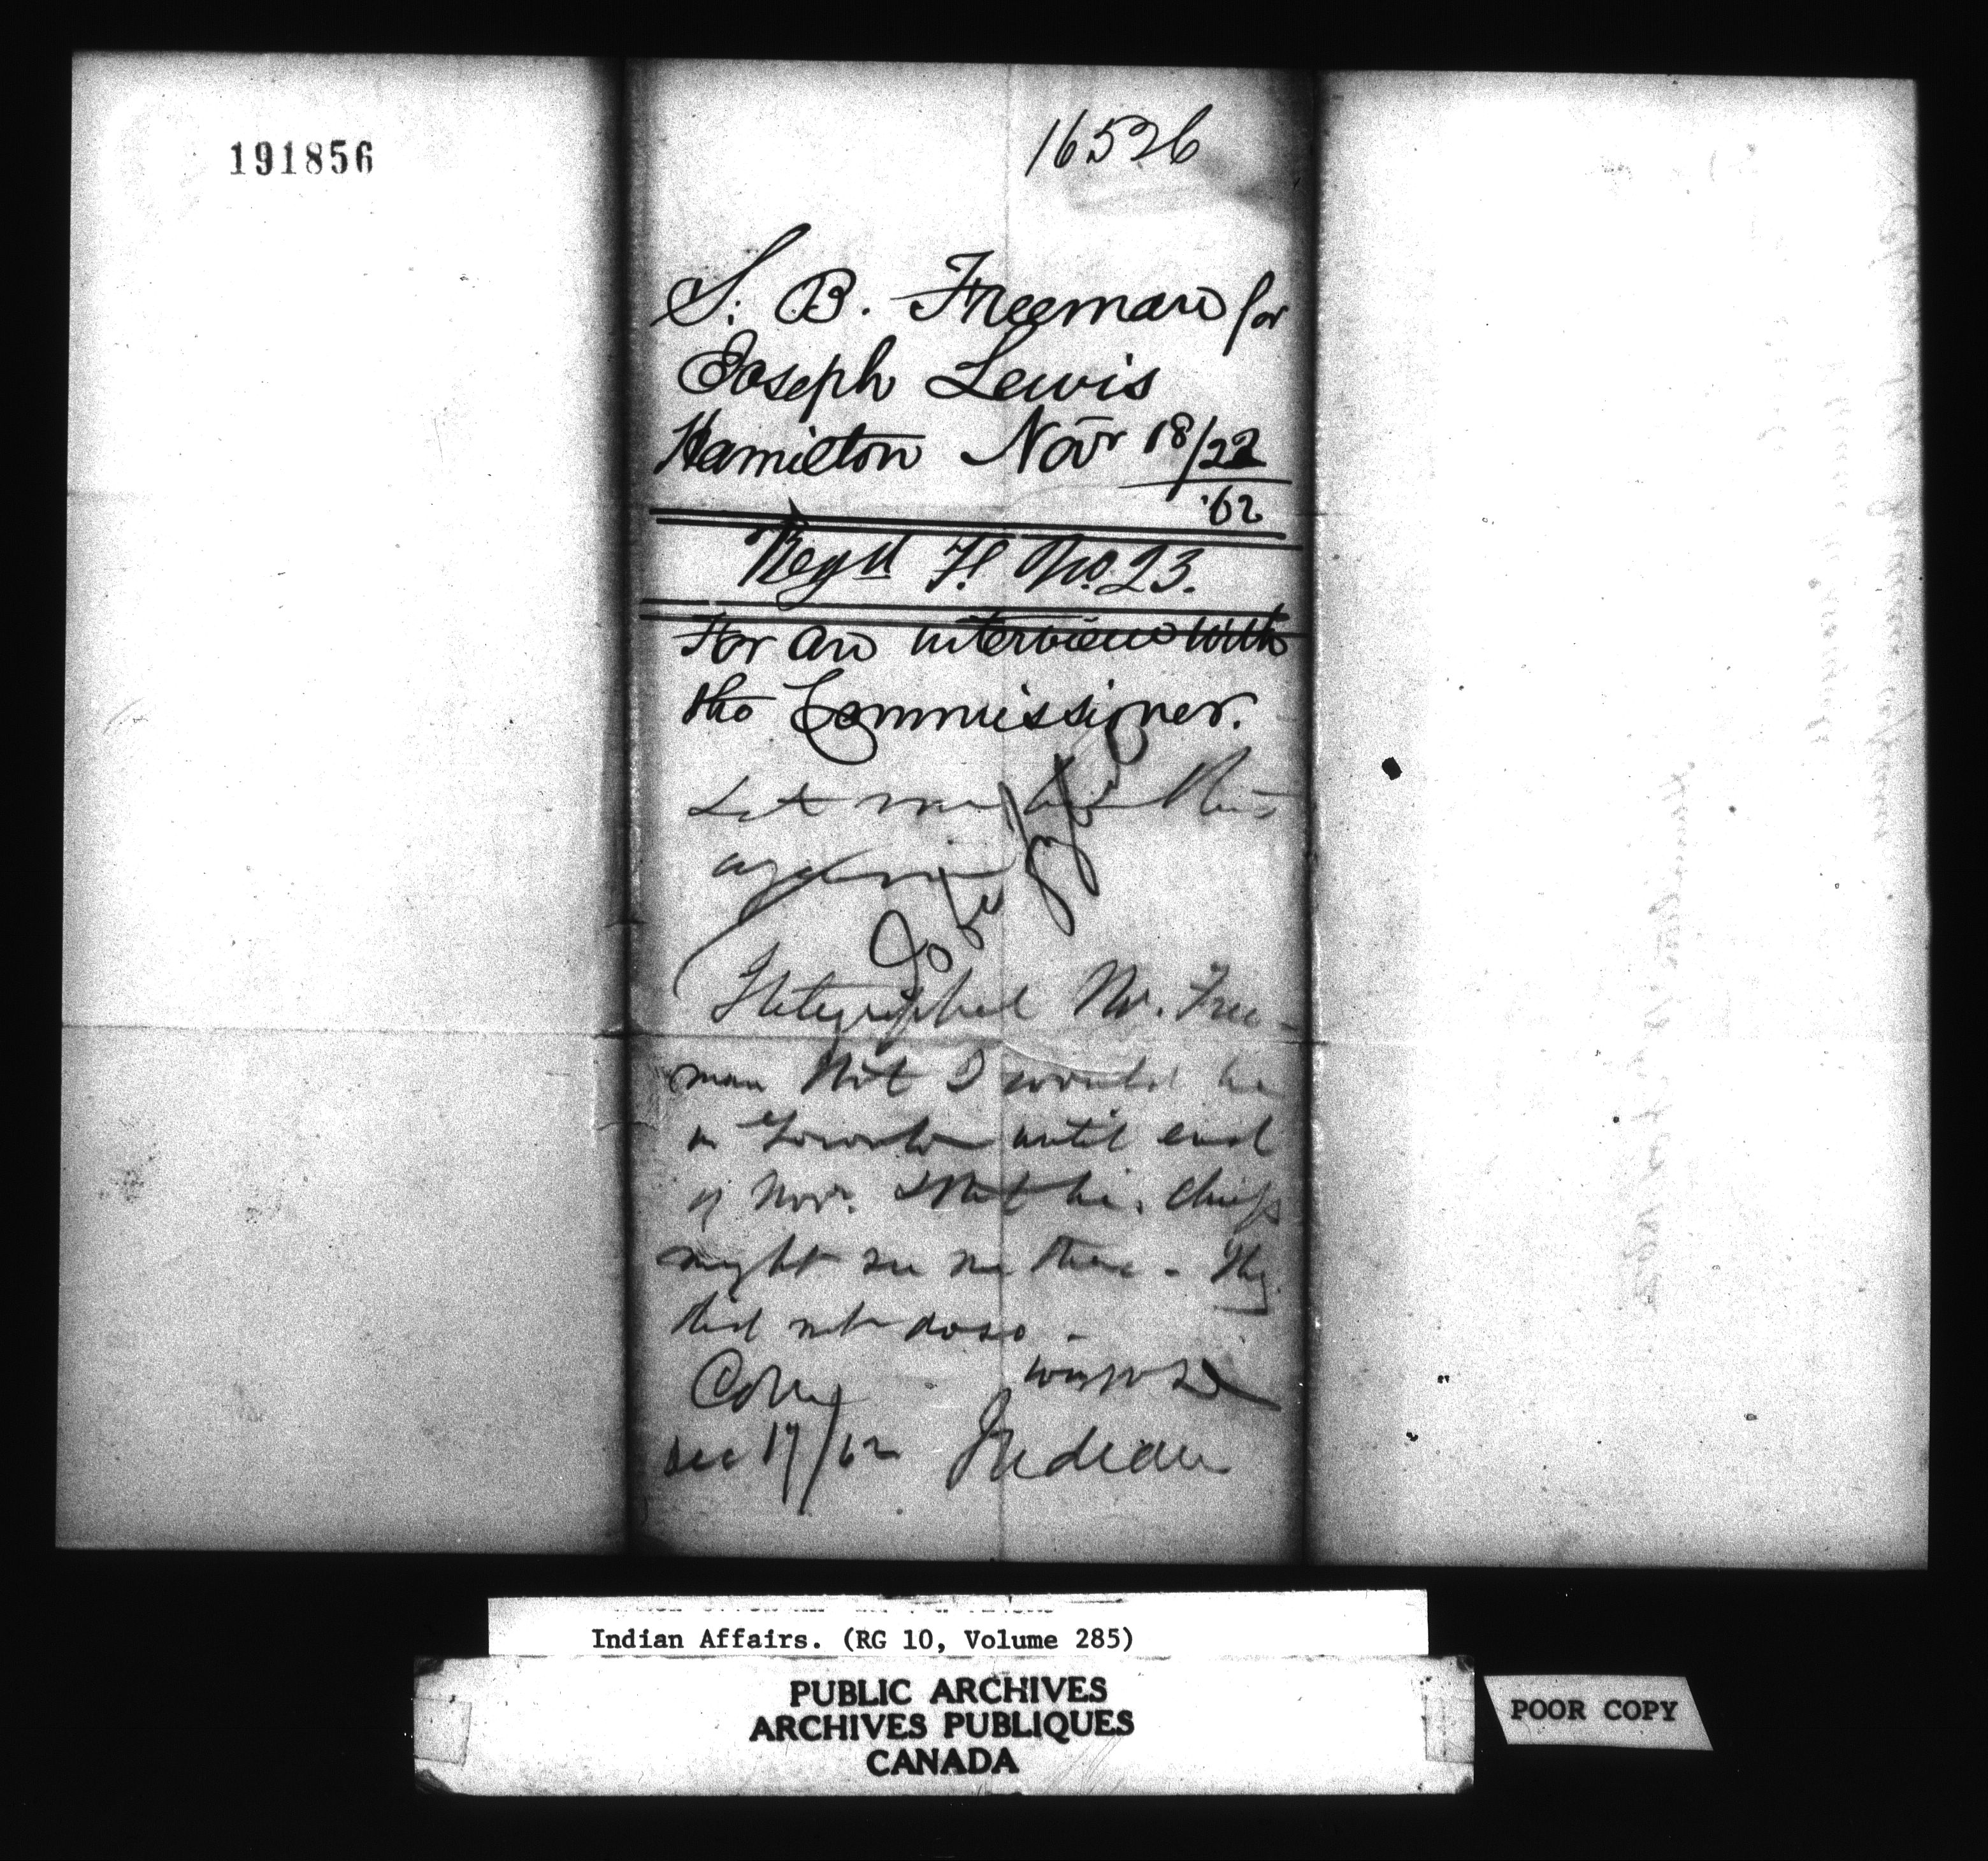 191856
16526
S. B. Freeman for
Joseph Lewis
Hamilton Novr 18/22
'62
Regd F. No. 23.
For an interview with
the Commissioner.
Let me have this
again
I telegraphed Mr. Free-
man that I would be
in Toronto until end
of Novr. & that his chiefs
might see me there - They
did not do so -
Dec 17/62 Indian
Indian Affairs. (RG 10, Volume 285)
PUBLIC ARCHIVES
ARCHIVES PUBLIQUES
CANADA
POOR COPY